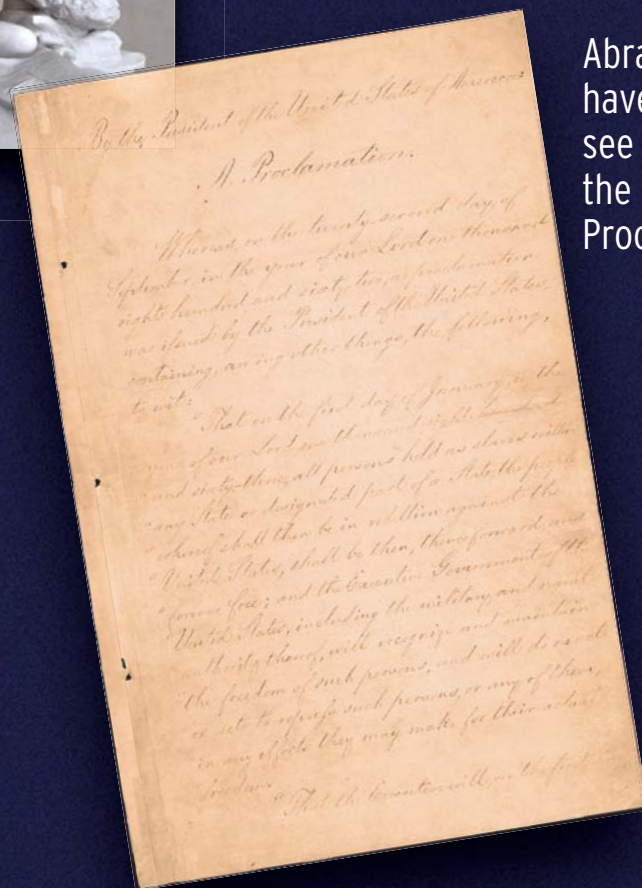 By the President of the United States of America:
A Proclamation.
Whereas, on the twenty-second day of
September, in the year of our Lord one thousand
eight hundred and sixty-two, a proclamation
was issued by the President of the United States,
containing, among other things, the following,
to wit:
"That on the first day of January, in the
"year of our Lord one thousand eight hundred
"and sixty-three, all persons held as slaves within
"any State or designated part of a State, the people
"whereof shall then be in rebellion against the
"United States, shall be then, thenceforward, and
"forever free; and the Executive Government of the
"United States, including the military and naval
"authority thereof, will recognize and maintain
"the freedom of such persons, and will do no act
"or acts to repress such persons, or any of them,
"in any efforts they may make for their actual
"freedom.
"That the Executive will, on the first
Abra
have
see
the
Proc